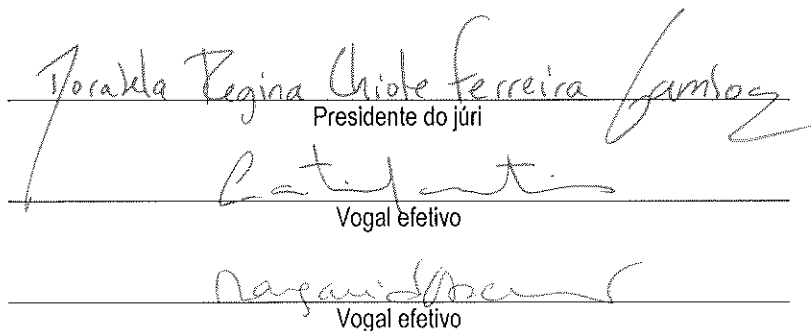 Dorabela Regina Chiote Ferreira Gamboa
Presidente do júri
Vogal efetivo
Vogal efetivo